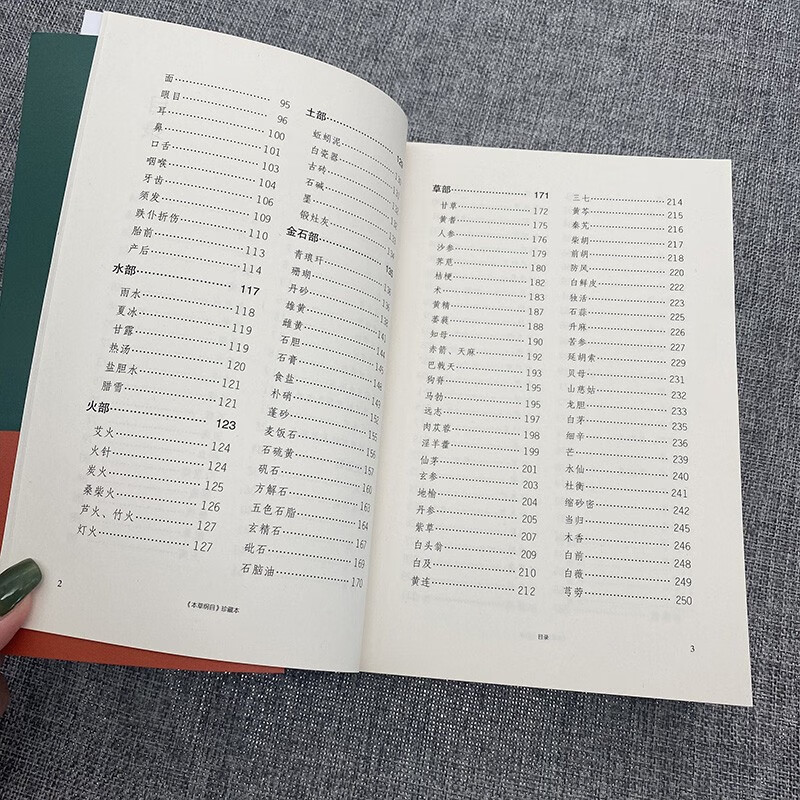 面……95
眼目……96
耳……100
鼻……101
口舌……103
咽喉……104
牙齿……106
须发……109
跌仆折伤……110
胎前……113
产后……114
水部……117
雨水……118
夏冰……119
甘露……119
热汤……120
盐胆水……121
腊雪……121
火部……123
艾火……124
火针……124
炭火……125
桑柴火……126
芦火、竹火……127
灯火……127
土部……
蚯蚓泥……
白瓷器……
古砖……
石碱……
墨……
锻灶灰……
金石部……
青琅玕……
珊瑚……
丹砂……
雄黄……
雌黄……
石胆……
石膏……
食盐……
朴硝……152
蓬砂……155
麦饭石……156
石硫黄……157
矾石……160
方解石……163
五色石脂……164
玄精石……167
砒石……169
石脑油……170
2
《本草纲目》珍藏本
草部……171
甘草……172
黄耆……175
人参……176
沙参……179
荠苨……180
桔梗……182
术……183
黄精……187
萎蕤……188
知母……190
赤箭、天麻……192
巴戟天……193
狗脊……194
马勃……195
远志……196
肉苁蓉……198
淫羊藿……199
仙茅……201
玄参……203
地榆……204
丹参……205
紫草……207
白头翁……209
白及……210
黄连……212
三七……214
黄芩……215
秦艽……216
柴胡……217
前胡……218
防风……220
白鲜皮……222
独活……223
石蒜……225
升麻……226
苦参……227
延胡索……229
贝母……231
山慈姑……232
龙胆……233
白茅……235
细辛……236
芒……239
水仙……240
杜衡……241
缩砂密……242
当归……245
木香……246
白前……248
白薇……249
芎䓖……250
目录
3